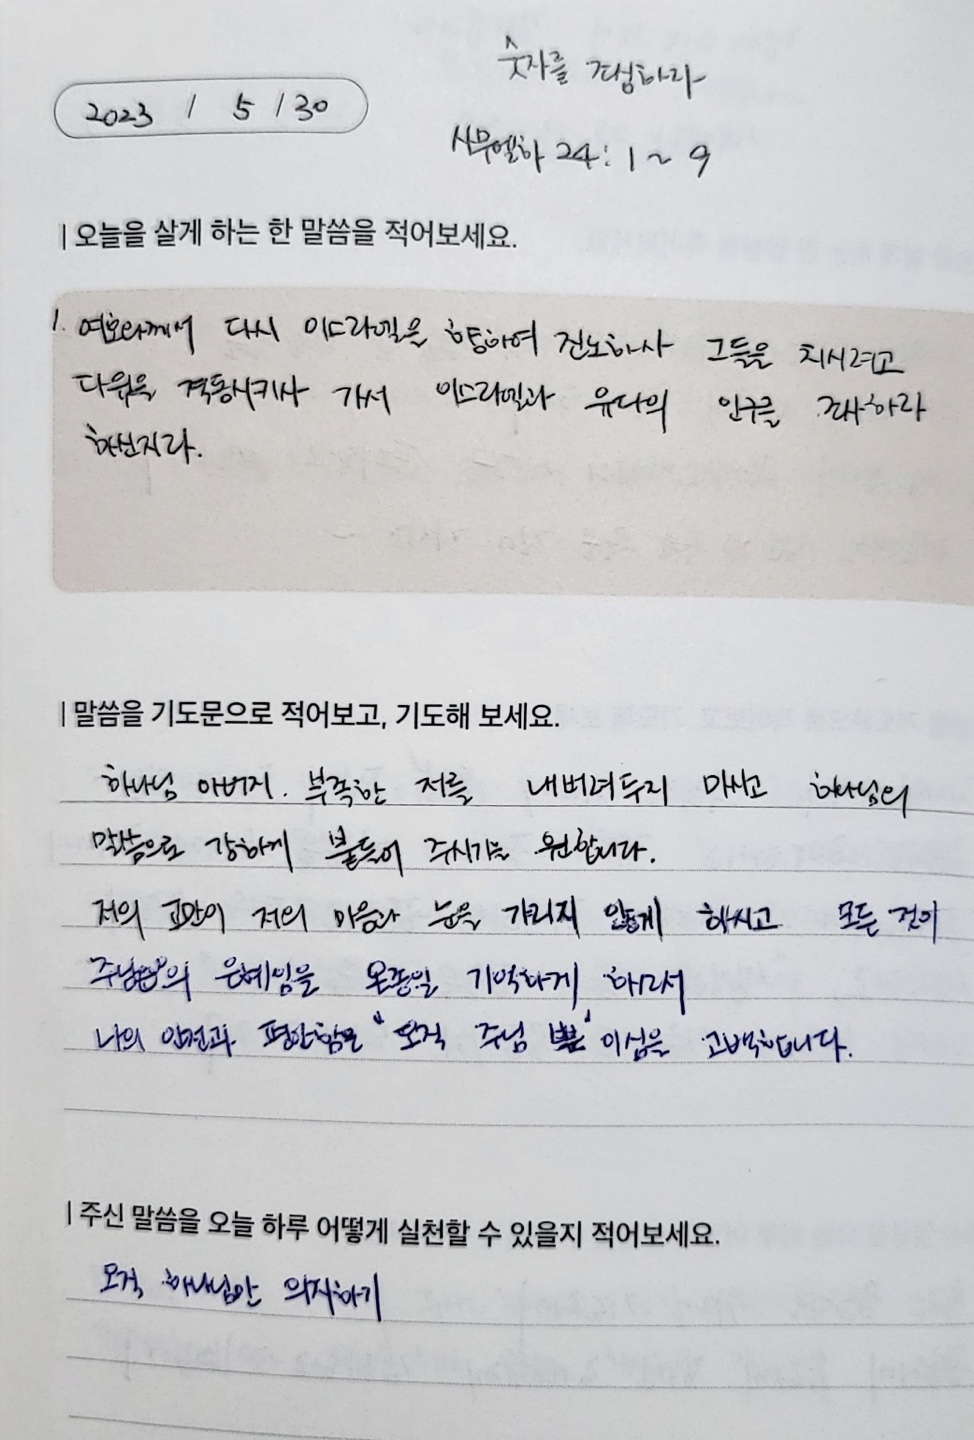 숫자를 점검하라
2023 / 5 / 30
사무엘하 24: 1 ~ 9
| 오늘을 살게 하는 한 말씀을 적어보세요.
1. 여호와께서 다시 이스라엘을 향하여 진노하사 그들을 치시려고
다윗을 격동시키사 가서 이스라엘과 유다의 인구를 조사하라
하신지라.
| 말씀을 기도문으로 적어보고, 기도해 보세요.
하나님 아버지. 부족한 저를 내버려두지 마시고 하나님의
말씀으로 강하게 붙들어 주시기를 원합니다.
저의 교만이 저의 마음과 눈을 가리지 않게 하시고 모든 것이
주님의 은혜임을 온종일 기억하게 하며서
나의 안전과 평안함은 "오직 주님 뿐" 이심을 고백합니다.
| 주신 말씀을 오늘 하루 어떻게 실천할 수 있을지 적어보세요.
오직 하나님만 의지하기